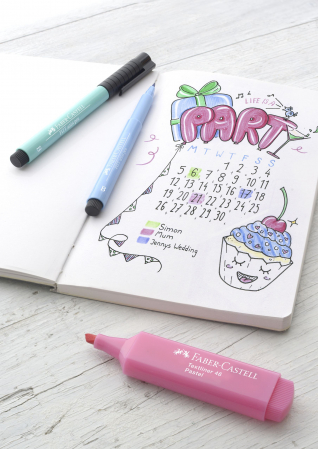 LIFE IS A
PARTY
M T W T F S S
1 2 3 4
5 6 7 8 9 10 11
12 13 14 15 16 17 18
19 20 21 22 23 24 25
26 27 28 29 30
Simon
Mum
Jennys Wedding
FABER-CASTELL
Textliner 46
Pastel